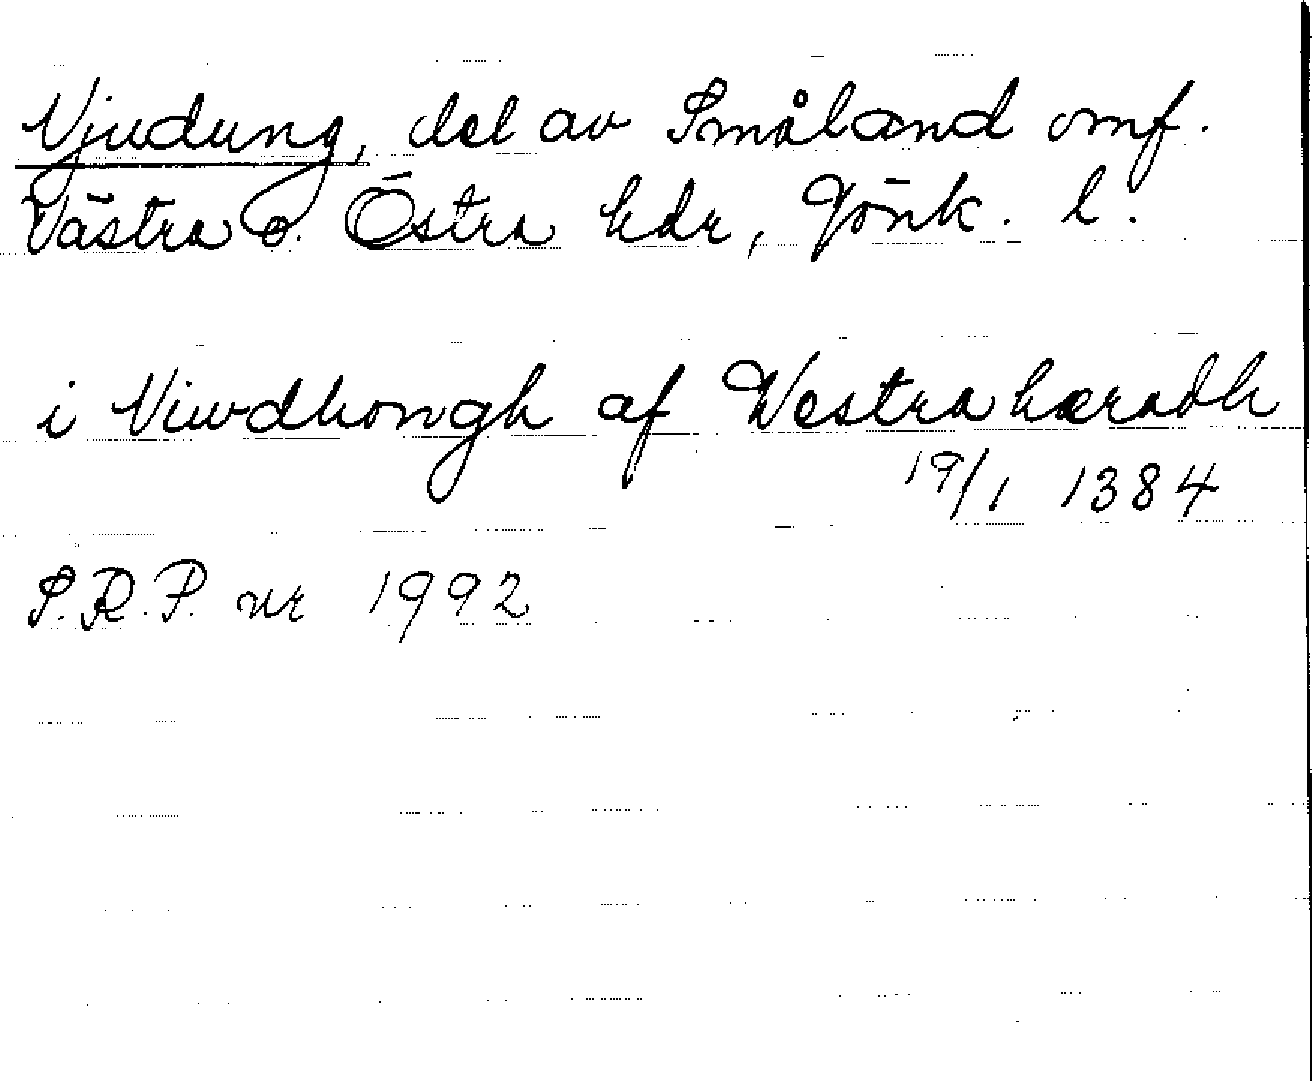 Njudung, del av Småland omf.
Västra o. Östra hdr, Jönk. l.
i Niwdhongh af Westrahæradh
19/1 1384
S.R.P. nr 1992